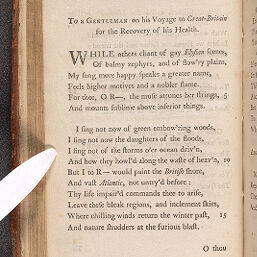 To a Gentleman on his Voyage to Great-Britain
for the Recovery of his Health.
WHILE others chant of gay Elysian scenes,
Of balmy zephyrs, and of flow'ry plains,
My song more happy speaks a greater name,
Feels higher motives and a nobler flame.
For thee, O R—, the muse attunes her strings, 5
And mounts sublime above inferior things.
I sing not now of green embow'ring woods,
I sing not now the daughters of the floods,
I sing not of the storms o'er ocean driv'n,
And how they howl'd along the waste of heav'n, 10
But I to R— would paint the British shore,
And vast Atlantic, not untry'd before:
Thy life impair'd commands thee to arise,
Leave these bleak regions, and inclement skies,
Where chilling winds return the winter past, 15
And nature shudders at the furious blast.
O thou